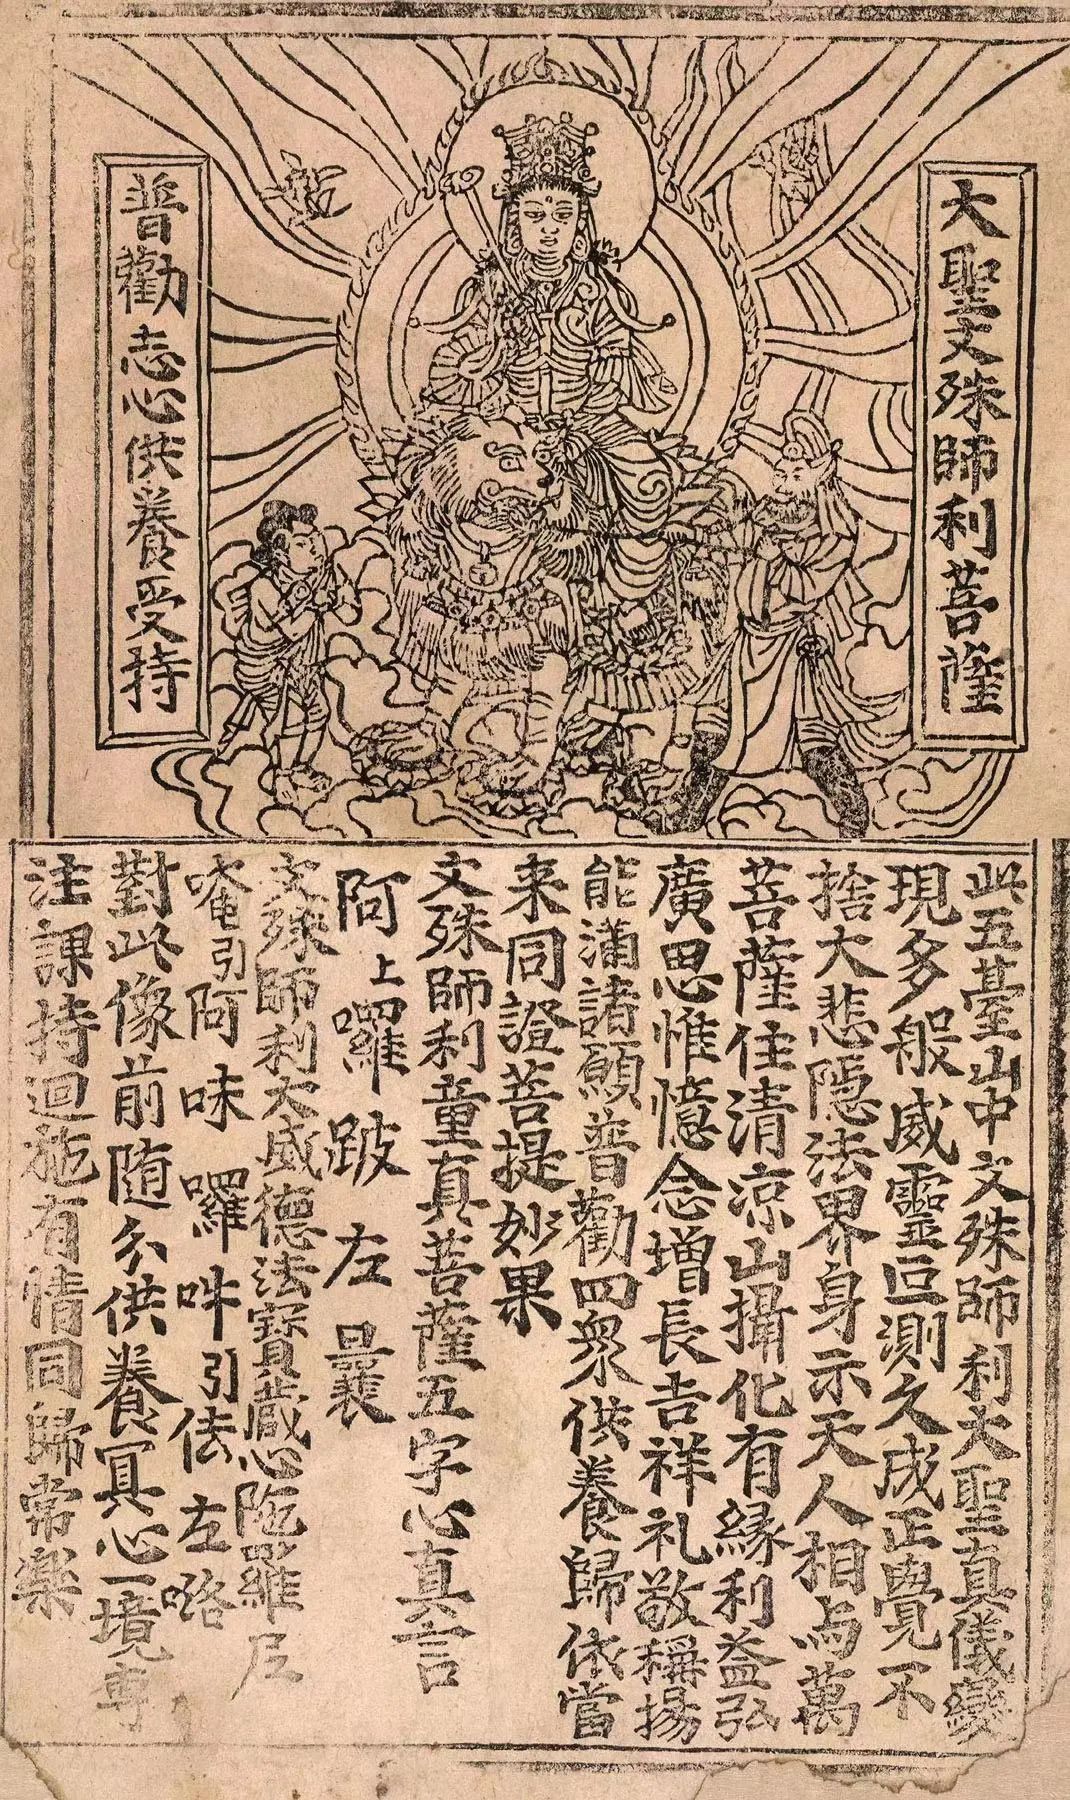 大聖文殊師利菩薩
普勸志心供養受持
此五臺山中文殊師利大聖真儀變
現多般威靈叵測久成正覺不
捨大悲隱法界身示天人相与萬
菩薩住清涼山攝化有緣利益弘
廣思惟憶念增長吉祥礼敬稱揚
能滿諸願普勸四眾供養歸依當
来同證菩提妙果
文殊師利童真菩薩五字心真言
阿上囉跛左曩
文殊師利大威德法寶藏心陁羅尼
唵引阿味囉𤙖引佉左咯
對此像前随分供養冥心一境專
注課持迴施有情同歸常樂